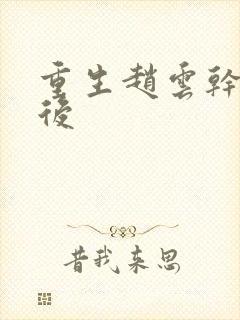 重生趙雲幹
後
昔我来思